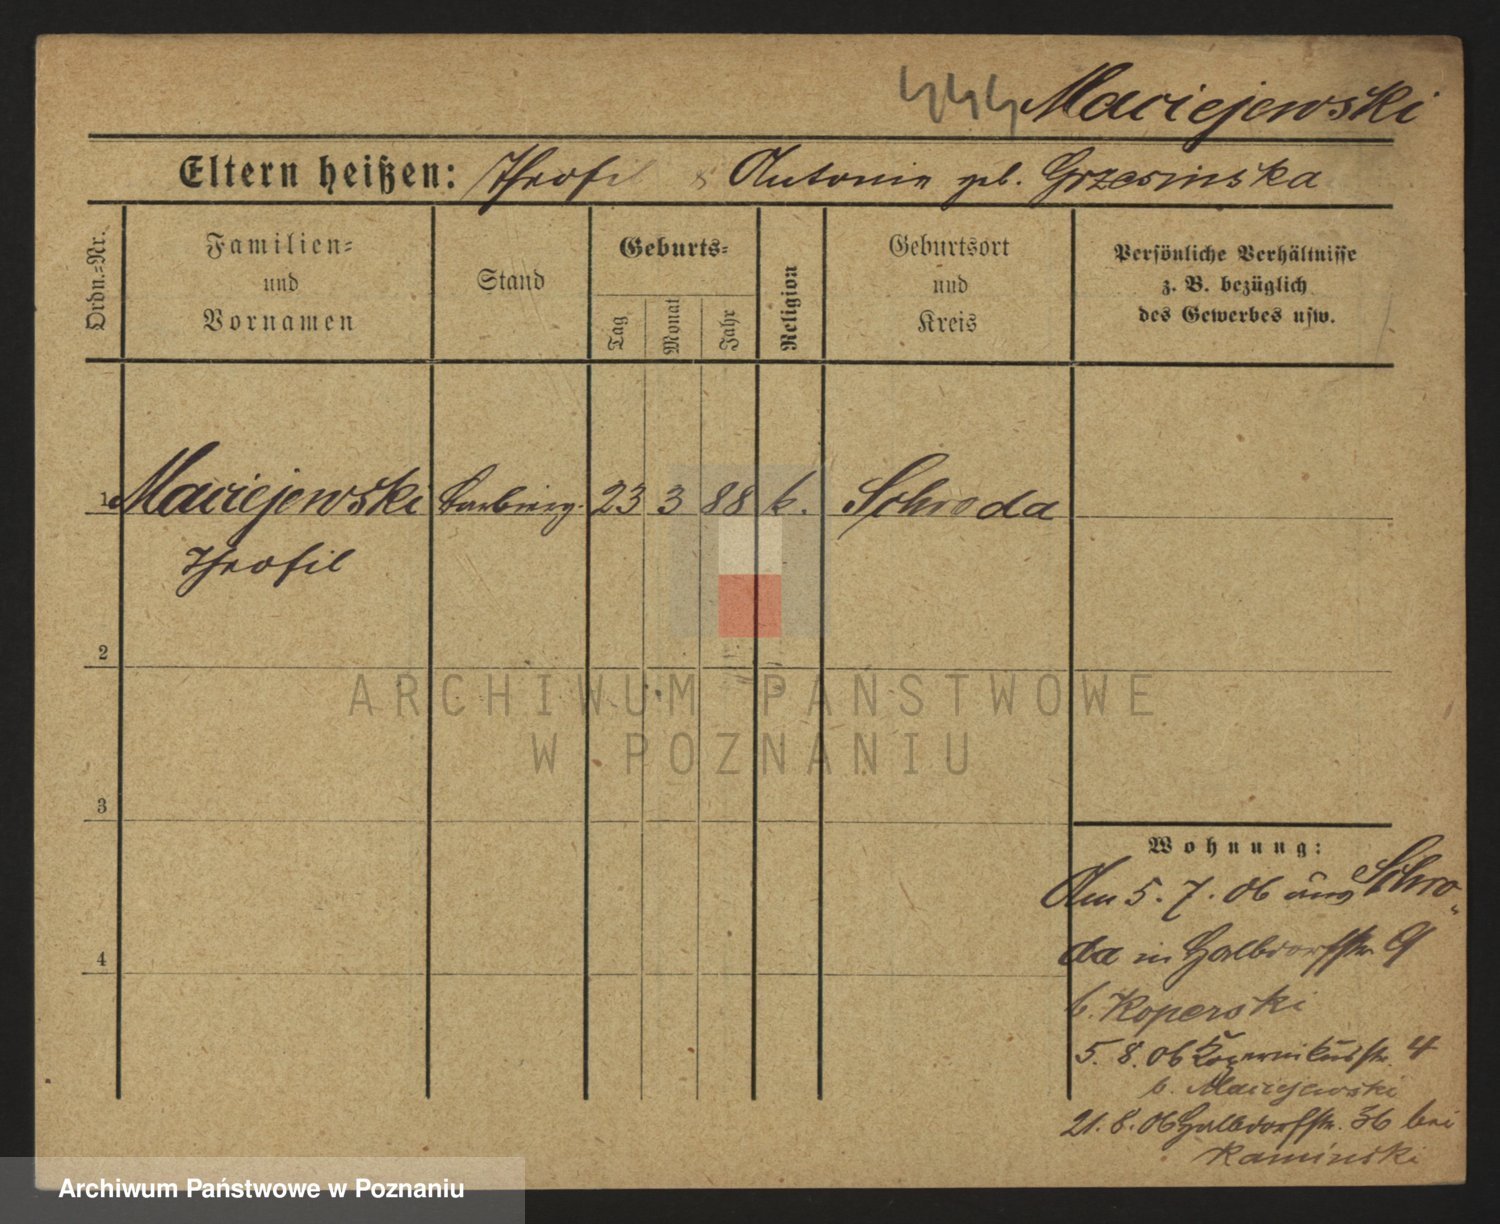 Maciejewski
Eltern heißen: Theofil & Antonie geb. Grzesinska
Ordn.-Nr.
Familien-
und
Vornamen
Stand
Geburts-
Tag
Monat
Jahr
Religion
Geburtsort
und
Kreis
Persönliche Verhältnisse
z. B. bezüglich
des Gewerbes usw.
1 Maciejewski 23 3 88 k. Schroda
Theofil
2
ARCHIWUM PAŃSTWOWE
W POZNANIU
3
Wohnung:
Am 5. 7. 06 aus Schro-
4
da in Halbdorfstr. 9
b. Koperski
5. 8. 06 Kopernikusstr. 4
b. Maciejewski
21. 8. 06 Halbdorfstr. 36 bei
Kaminski
Archiwum Państwowe w Poznaniu